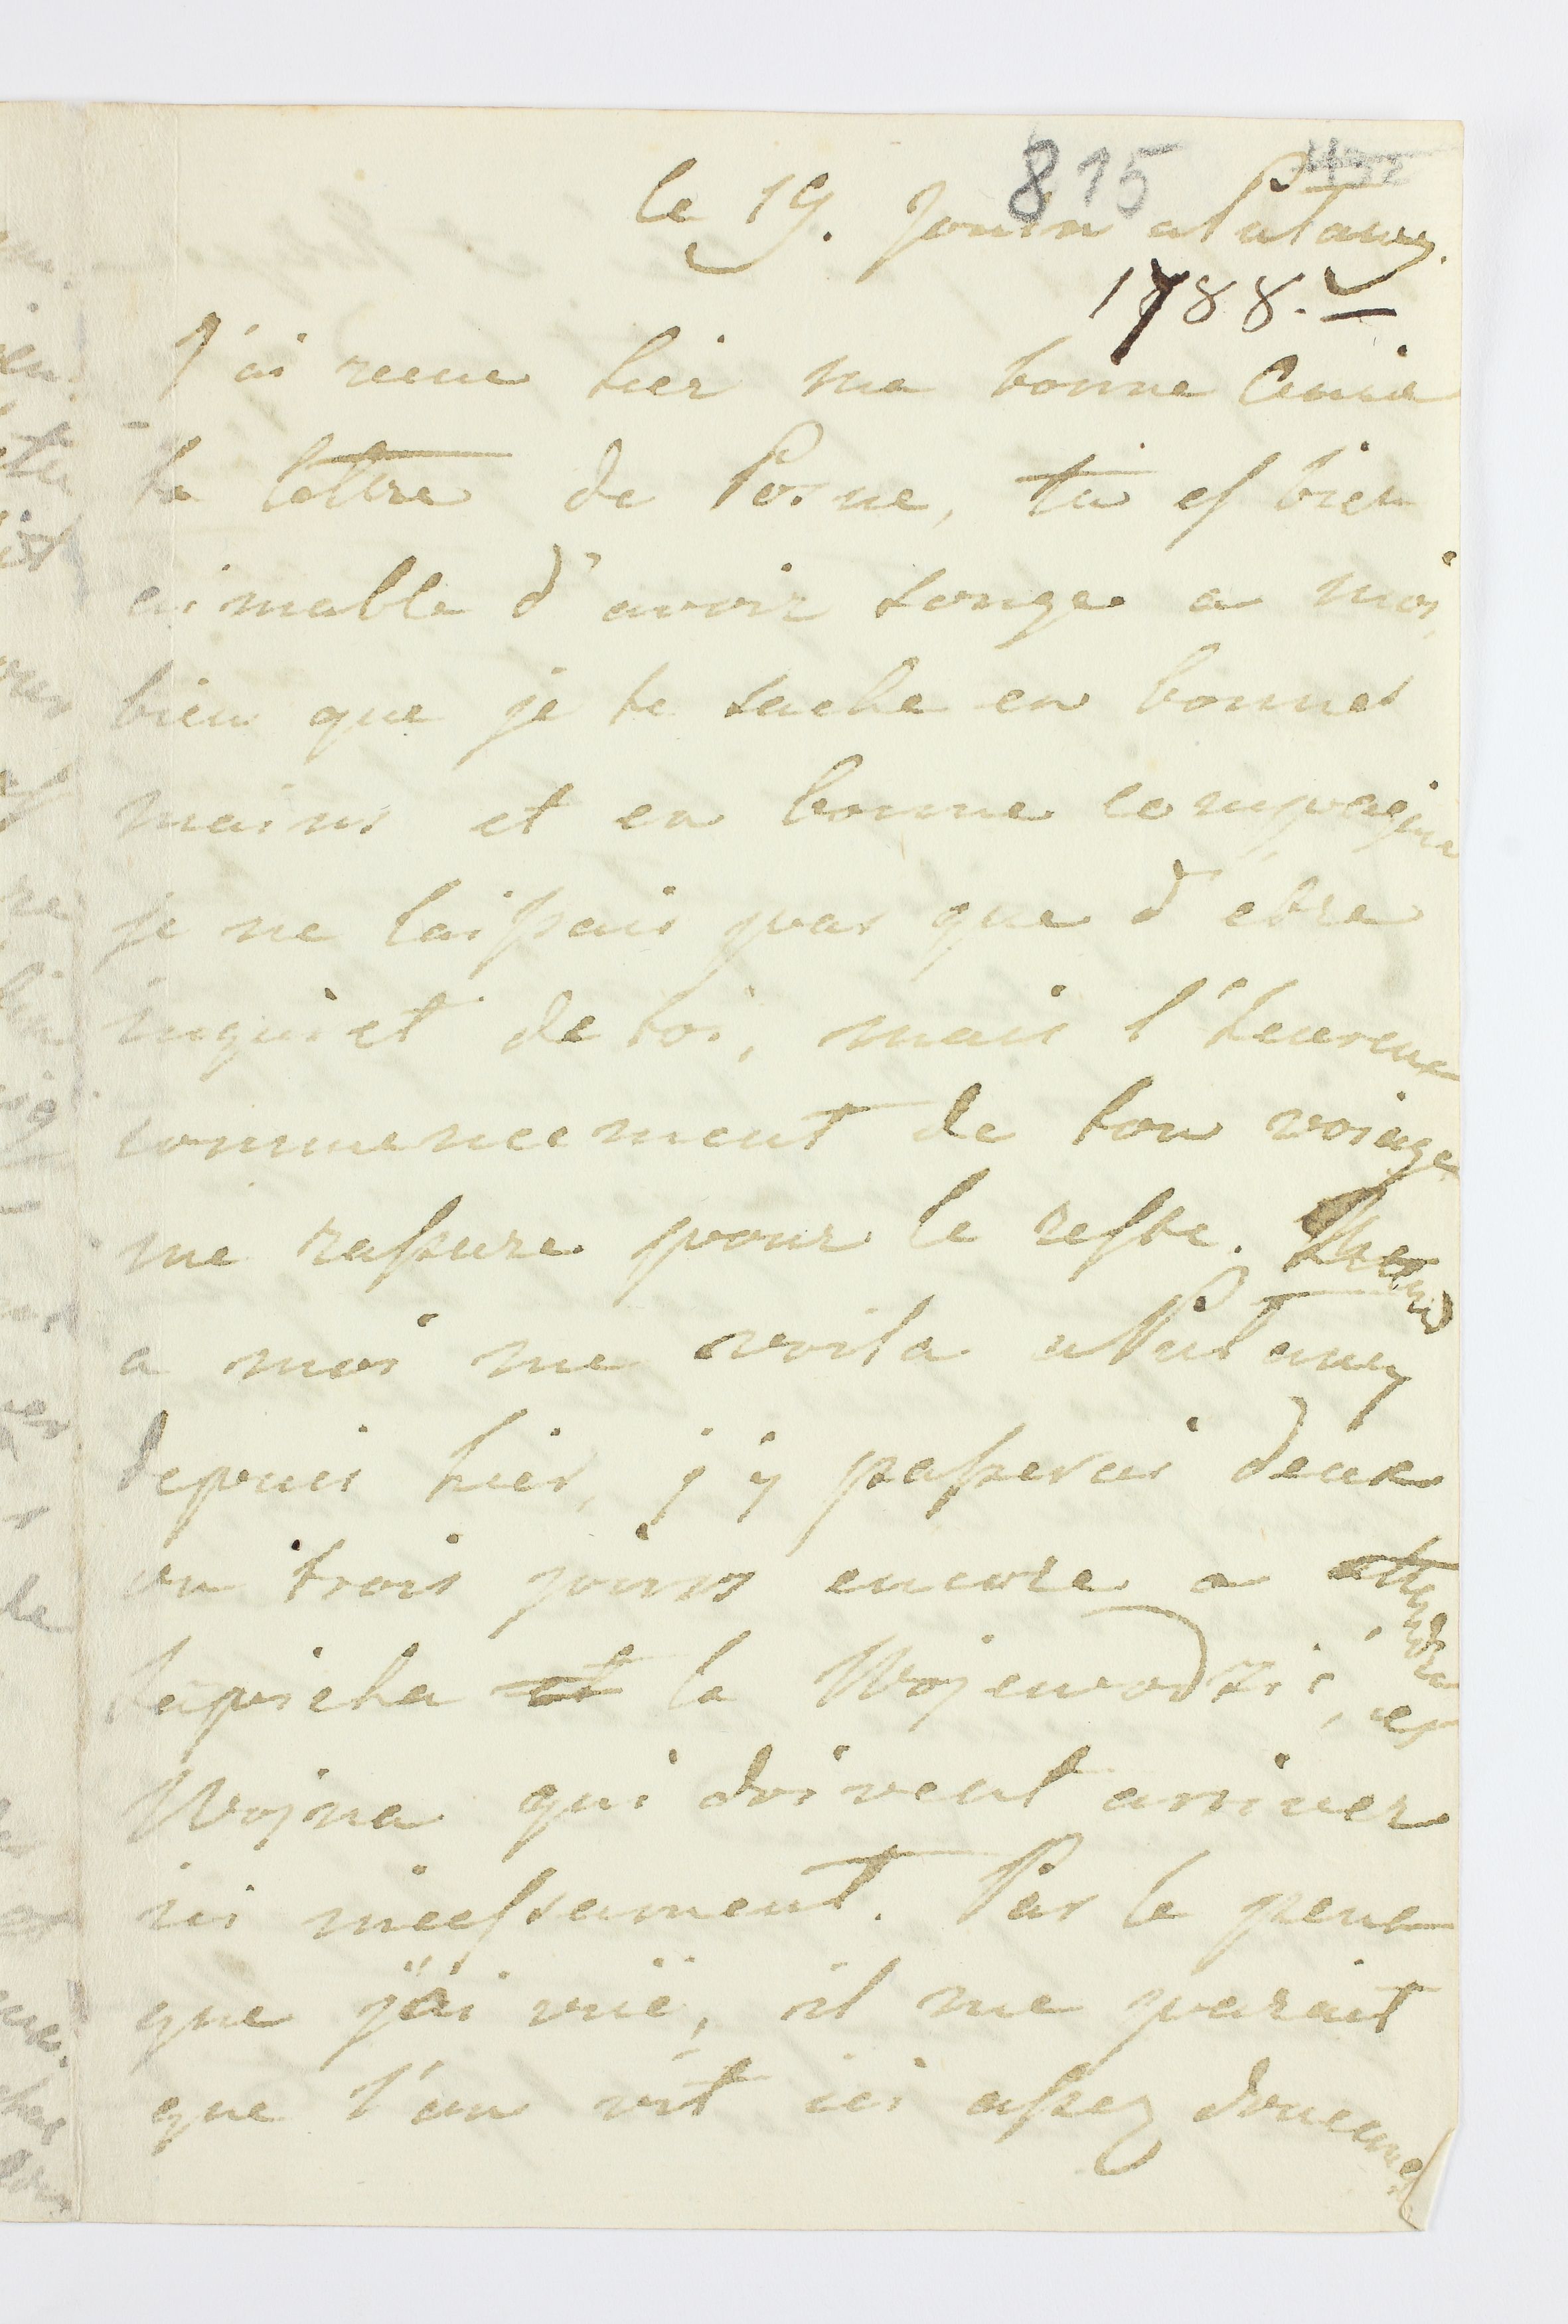 815
le 19. Jouin a Putawy.
1788.
J'ai recue hier ma bonne Amie
ta lettre de Posne, tu es bien
aimable d'avoir songe a moi,
bien que je te sache en bonnes
mains et en bonne compagnie
je ne laissais pas que d'etre
inquiet de toi, mais l'heureux
commencement de ton voiage
me rassure pour le reste. Quand
a moi me voila a Putawy
depuis hier, j'y passerai deux
ou trois jours encore a attendre
Sapieha et la Wojewodzi, et
Wojna qui doivent arriver
ici incessament. Par le peux
que j'ai vuë, il me parait
que l'on vit ici assez doucement